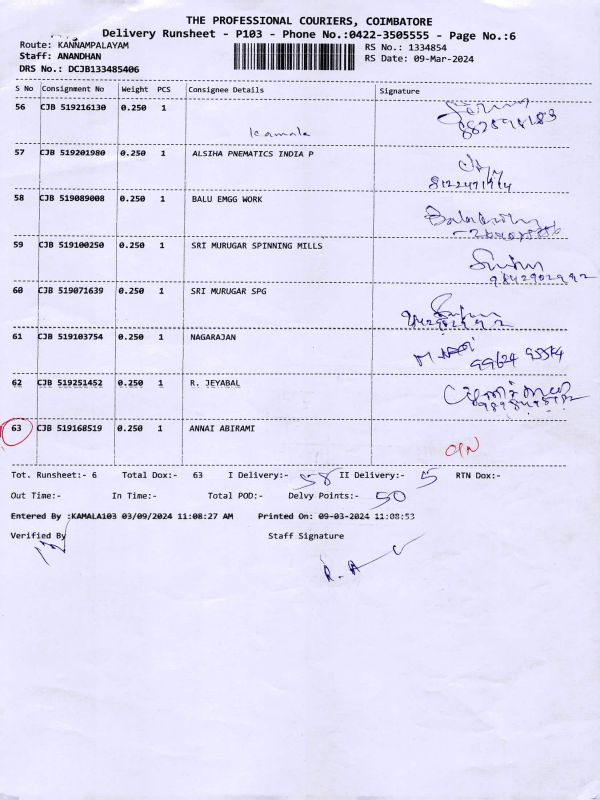 THE PROFESSIONAL COURIERS, COIMBATORE
Delivery Runsheet - P103 - Phone No.:0422-3505555 - Page No.:6
Route: KANNAMPALAYAM
RS No.: 1334854
Staff: ANANDHAN
RS Date: 09-Mar-2024
DRS No.: DCJB133485406
S No Consignment No Weight PCS Consignee Details Signature
56 CJB 519216130 0.250 1
Kamala
57 CJB 519201980 0.250 1 ALSIHA PNEMATICS INDIA P
58 CJB 519089008 0.250 1 BALU EMGG WORK
59 CJB 519100250 0.250 1 SRI MURUGAR SPINNING MILLS
9842902992
60 CJB 519071639 0.250 1 SRI MURUGAR SPG
61 CJB 519103754 0.250 1 NAGARAJAN
62 CJB 519251452 0.250 1 R. JEYABAL
63 CJB 519168519 0.250 1 ANNAI ABIRAMI
Tot. Runsheet:- 6 Total Dox:- 63 I Delivery:- 58 II Delivery:- 5 RTN Dox:-
Out Time:- In Time:- Total POD:- Delvy Points:- 50
Entered By :KAMALA103 03/09/2024 11:08:27 AM Printed On: 09-03-2024 11:08:53
Verified By Staff Signature